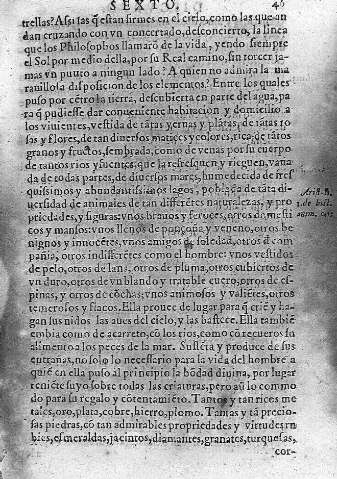 SEXTO. 46
trellas? Assi las q̃ estan firmes en el cielo, como las que an
dan cruzando con vn concertado, desconcierto, la linea
que los Philosophos llamarõ de la vida, yendo siempre
el Sol por medio della, por su Real camino, sin torcer ja-
mas vn punto a ningun lado? A quien no admira la ma
rauillosa disposicion de los elementos? Entre los quales
puso por cẽtro la tierra, descubierta en parte del agua, pa
ra q̃ pudiesse dar conueniente habitacion y domicilio a
los viuientes, vestida de tãtas yeruas y plãtas, de tãtas ro
sas y flores, de tan diuersos matizes y colores, rica de tãtos
granos y fructos, sembrada, como de venas por su cuerpo
de tantos rios y fuentes, que la refresquen y rieguen, vaña
da de todas partes, de diuersos mares, humedecida de fres
quissimos y abundantissimos lagos, poblada de tãta di-
uersidad de animales de tan differẽtes naturalezas, y pro
priedades, y figuras: vnos brauos y feroces, otros domesti
cos y mansos: vnos llenos de ponçoña y veneno, otros be
nignos y innocẽtes, vnos amigos de soledad, otros d̃ com
pañia, otros indifferẽtes como el hombre: vnos vestidos
de pelo, otros de lana, otros de pluma, otros cubiertos de
vn duro, otros de vn blando y tratable cuero, otros de es
pinas, y otros de cõchas: vnos animosos y valiẽtes, otros
temerosos y flacos. Ella prouee de lugar para q̃ criẽ y ha-
gan sus nidos las aues del cielo, y las bastece. Ella tambiẽ
embia como de acarreto, cõ los rios, como cõ recueros su
alimento a los peces de la mar. Sustẽta y produce de sus
entrañas, no solo lo necessario para la vida del hombre a
quiẽ en ella puso al principio la bõdad diuina, por lugar
teniẽte suyo sobre todas las criaturas, pero aũ lo commo
do para su regalo y cõtentamiẽto. Tantos y tan ricos me
tales, oro, plata, cobre, hierro, plomo. Tantas y tã precio-
sas piedras, cõ tan admirables propriedades y virtudes ru
bies, esmeraldas, jacintos, diamantes, granates, turquesas,
cor-
Arist. 8.